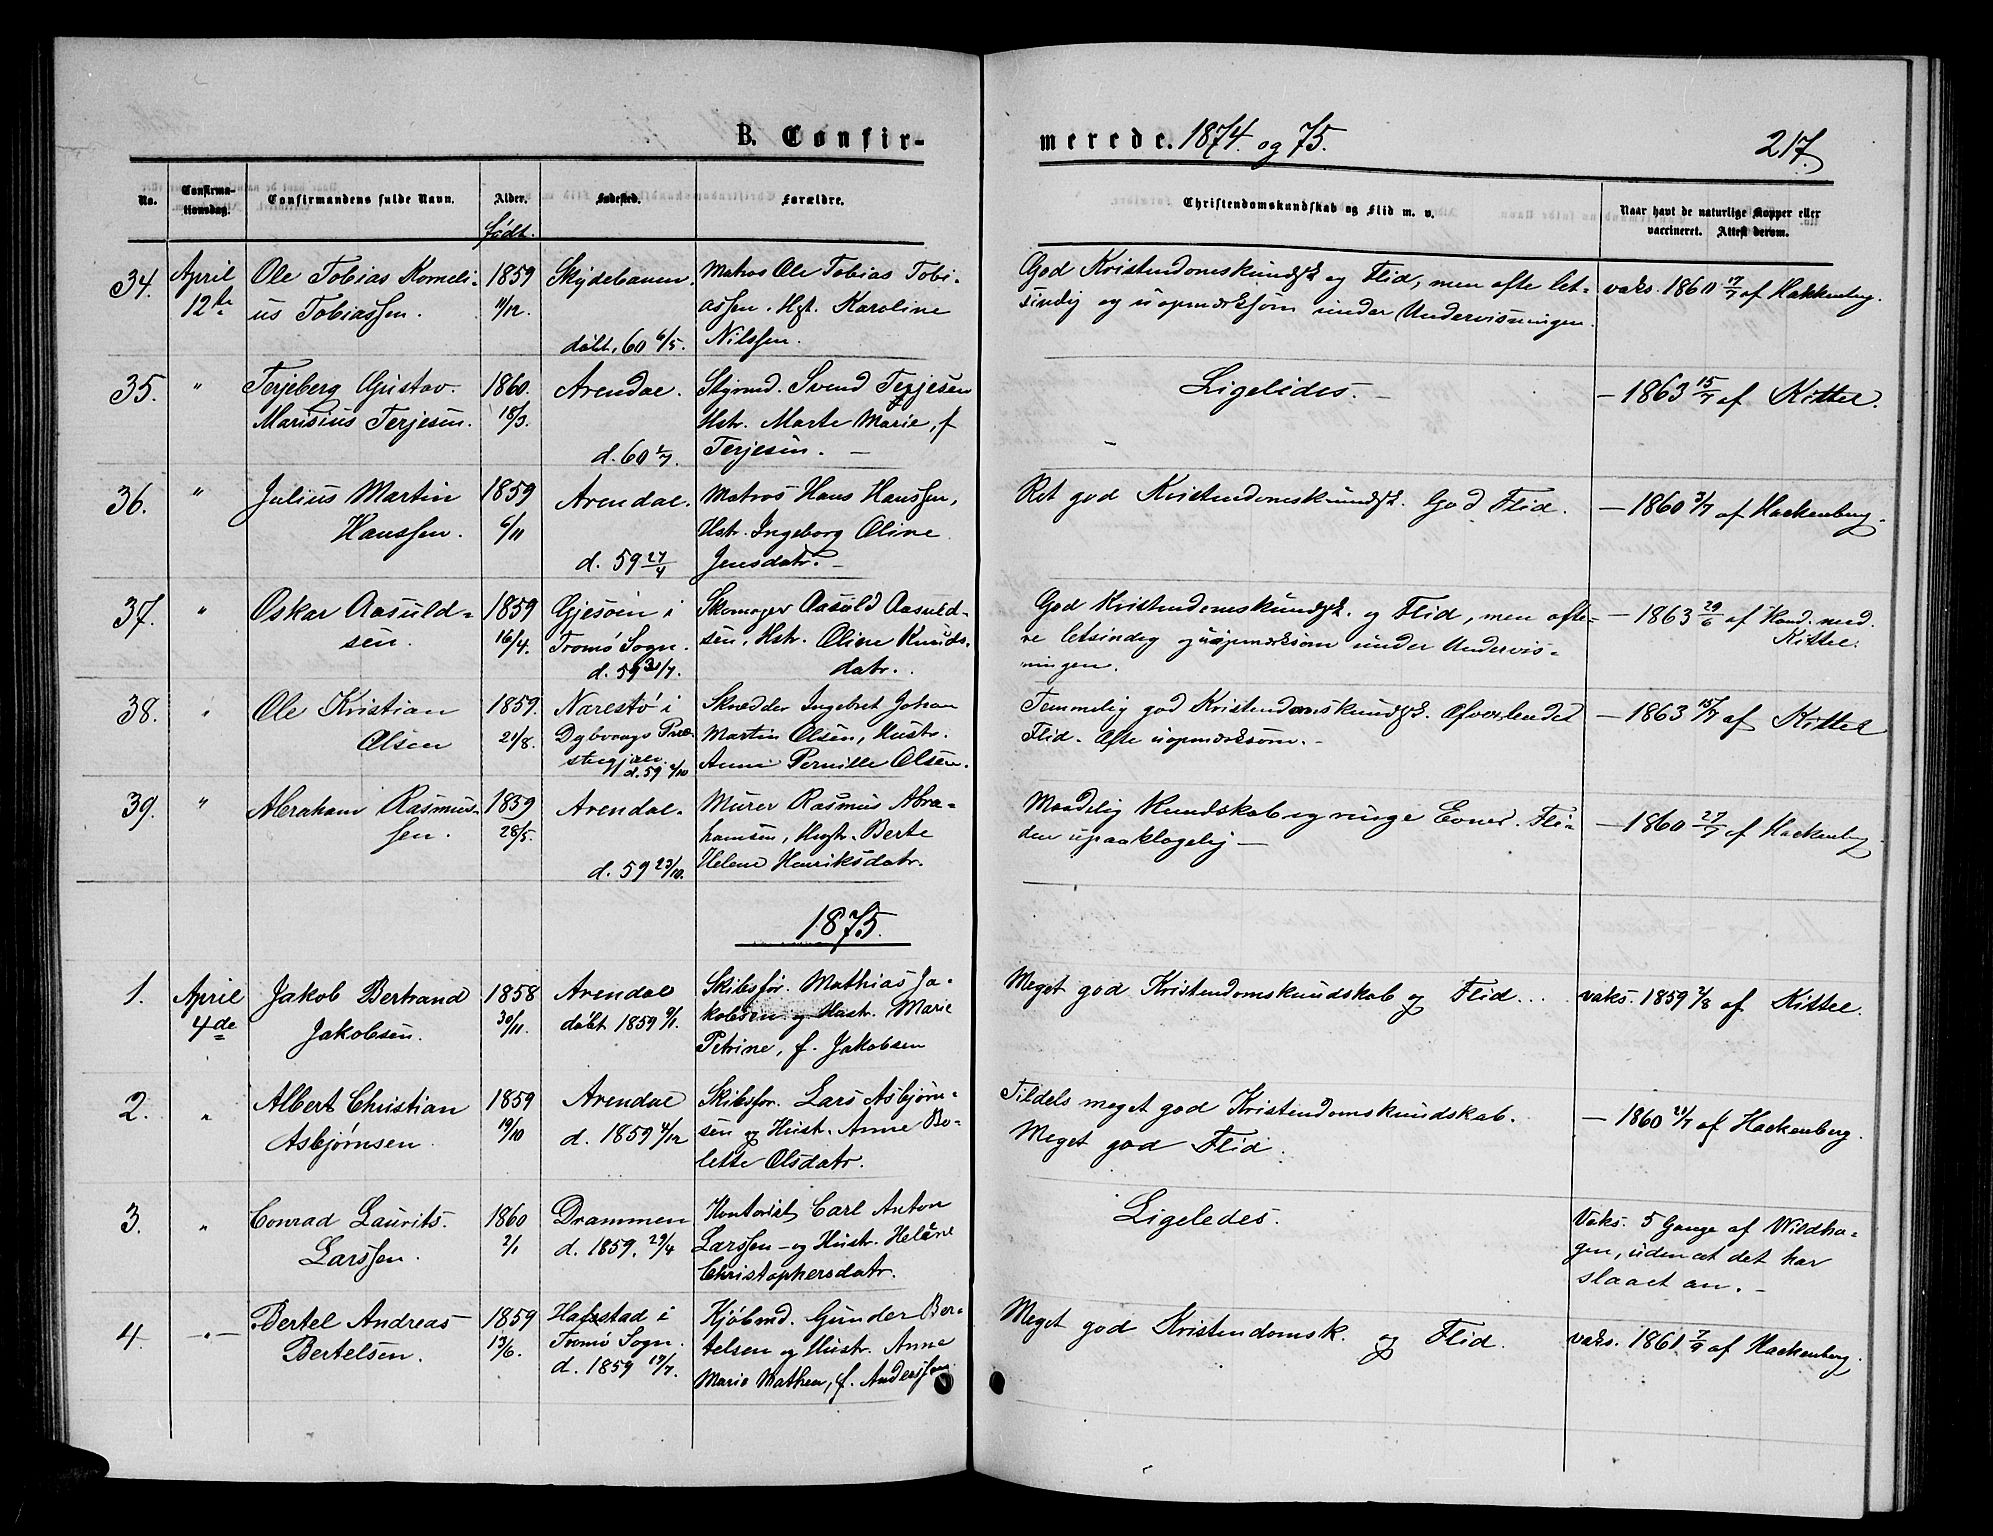 B. Confir-
merede. 1874. og 75.
217.
No.
Confirma-
tionsdag.
Confirmandens fulde Navn.
Alder.
Født.
Fødested.
Forældre.
Christendomskundskab og Flid m. v.
Naar havt de naturlige Kopper eller
vaccineret. Attest derom.
34.
April
12te
Ole Tobias Korneli-
us Tobiassen.
1859
11/12.
Skydebanen.
døbt, 60 6/5.
Matros Ole Tobias Tobi-
assen. Hst. Karoline
Nilssen.
God Kristendomskundsk. og Flid, men ofte let-
sindig og uopmærksom under Undervisningen.
vaks. 1860 17/7 af Hakkenberg.
35.
"
Terjeberg Gustav
Marisius Terjesen.
1860.
18/3.
Arendal.
d. 60 1/7.
Styrmd. Svend Terjesen
Hstr. Marte Marie, f.
Terjesen. —
Ligeledes. —
— 1863 15/7 af Kittel.
36.
"
Julius Martin
Hanssen.
1859
6/11
Arendal.
d. 59 27/4
Matros Hans Hanssen,
Hstr. Ingeborg Oline
Jensdatr. —
Ret god Kristendomskundsk. God Flid.
— 1860 3/7 af Hackenberg.
37.
"
Oskar Aasuld-
sen.
1859
16/4.
Gjesøen i
Tromø Sogn.
d. 59 31/7.
Skomager Aasuld Aasuld-
sen, Hstr. Oline Knuds-
datr.
God Kristendomskundsk. og Flid, men ofte-
re letsindig og uopmærksom under Undervis-
ningen.
— 1863 29/6 af Kand. med.
Kittel.
38.
"
Ole Kristian
Olsen
1859.
21/8.
Narestø i
Dybvaags Præ-
stegjæld.
d. 59 2/10
Skrædder Ingebret Johan
Martin Olsen, Hustr.
Anne Pernille Olsen.
Temmelig god Kristendomskundsk. Afvexlende
Flid. Ofte uopmærksom. —
— 1863 15/7 af Kittel
39.
"
Abraham Rasmus-
sen.
1859
28/5.
Arendal.
d. 59 23/10.
Murer Rasmus Abra-
hamsen, Hustr. Berte
Helene Henriksdatr.
Maadelig Kundskab og ringe Evner. Fli-
den upaaklagelig —
— 1860 27/7 af Hackenberg
1875.
1.
April
4de
Jakob Bertrand
Jakobsen.
1858
30/11.
Arendal
døbt 1859 9/1.
Skibsfør. Mathias Ja-
kobsen og Hustr. Marie
Petrine, f. Jakobsen
Meget god Kristendomskundskab og Flid...
vaks. 1859 2/8 af Kittel.
2.
"
Albert Christian
Asbjørnsen
1859
19/10
Arendal
d. 1859 4/12
Skibsfør. Lars Asbjørn-
sen og Hust. Anne Bo-
lette Olsdatr.
Tildels meget god Kristendomskundskab.
Meget god Flid.
— 1860 21/7 af Hackenberg.
3.
"
Conrad Laurits.
Larssen.
1860
2/1
Drammen
d. 1859. 29/4
Kontorist Carl Anton
Larssen — og Hustr. Helene
Christophersdatr.
Ligeledes.
Vaks. 5 Gange af Wildha-
gen, uden at det har
slaaet an. —
4.
—"—
Bertel Andreas
Bertelsen.
1859
13/6.
Hafstad i
Tromø Sogn.
d. 1859 17/7.
Kjøbmd. Gunder Ber-
telsen og Hustr. Anne
Marie Mathea, f. Anderssen.
Meget god Kristendomsk. og Flid.
vaks. 1861 7/7 af Hackenberg.